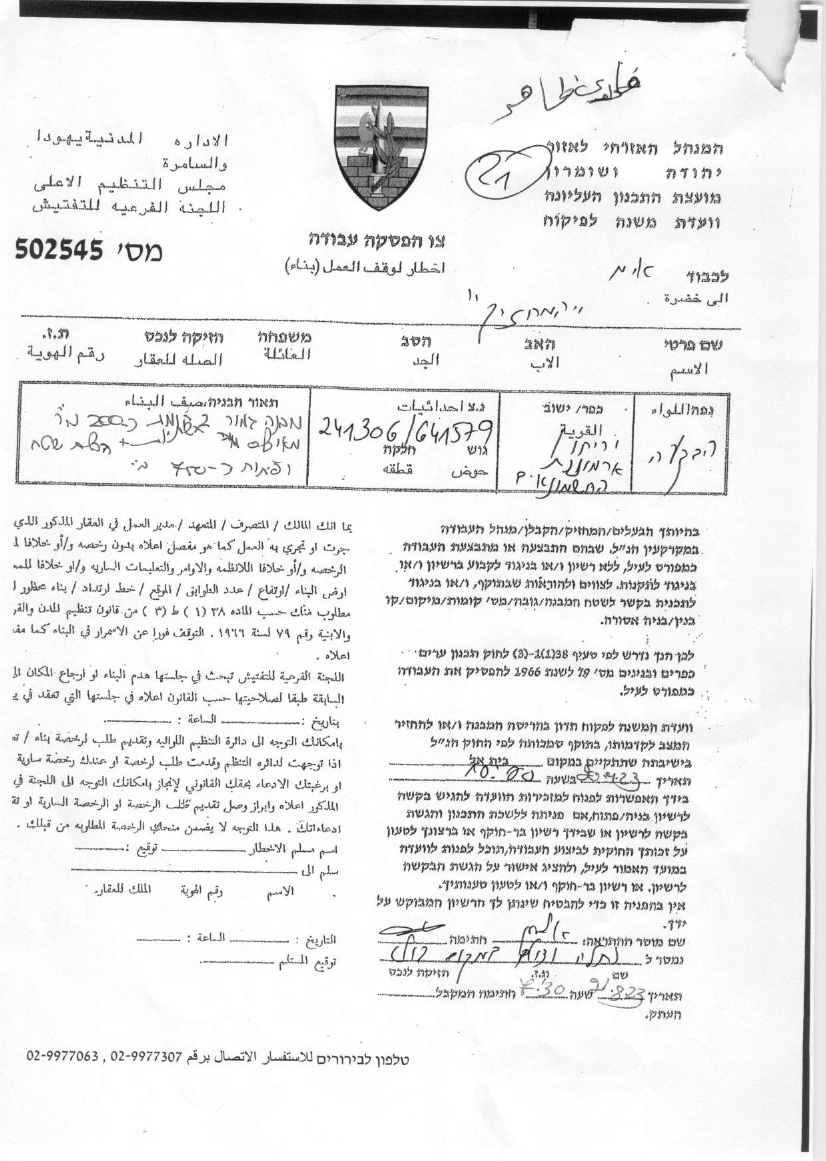 الاداره المدنية يهودا
والسامرة
مجلس التنظيم الاعلى
اللجنة الفرعيه للتفتيش
המנהל האזרחי לאזור
יהודה ושומרון
מועצת התכנון העליונה
וועדת משנה לפיקוח
21
מס' 502545
צו הפסקה עבודה
اخطار لوقف العمل (بناء)
לכבוד
الى حضرة
"המחזיק"
שם פרטי האב הסב משפחה חזיקה לנכס ת.ז.
الاسم الاب الجد العائلة الصله للعقار رقم الهوية
נפה اللواء
הבקעה
כפר/ ישוב
القرية
יריחו
ארמונות
החשמונאים
נ.צ احداثيات
241306/641579
גוש חלקה
حوض قطعه
תאור הבניה وصف البناء
מבנה
בהיותך הבעלים/המחזיק/הקבלן/מנהל העבודה
במקרקעין הנ"ל. שבהם התבצעה או מתבצעת העבודה
כמפורט לעיל, ללא רשיון ו/או בניגוד לקבוע ברשיון ו/או
בניגוד לתקנות. לצווים ולהוראות שבתוקף, ו/או בניגוד
לתכנית בקשר לשטח המבנה/גובה/מס' קומות/מיקום/קו
בנין/בניה אסורה.
לכן הנך נדרש לפי סעיף 38(1)-(3) לחוק תכנון ערים
כפרים ובנינים מס' 79 לשנת 1966 להפסיק את העבודה
כמפורט לעיל.
וועדת המשנה לפקוח תדון בהריסת המבנה ו/או להחזיר
המצב לקדמותו, בתוקף סמכותה לפי החוק הנ"ל
בישיבתה שתתקיים במקום בית אל
תאריך בשעה 10.00
בידך האפשרות לפנות למזכירות הוועדה להגיש בקשה
לרשיון בניה/פתוח, אם פניתה ללשכת התכנון והגשת
בקשה לרשיון או שבידך רשיון בר-תוקף או ברצונך לטעון
על זכותך החוקית לביצוע העבודה, תוכל לפנות לוועדה
במועד האמור לעיל, ולהציג אישור על הגשת הבקשה
לרשיון. או רשיון בר-תוקף ו/או לטעון טענותיך.
אין בהפניה זו כדי להבטיח שינתן לך הרשיון המבוקש על
ידך.
שם מוסר ההתראה: חתימה
נמסר ל במקום
שם ת.ז. חזיקה לנכס
תאריך שעה 9:30 חתימה המקבל
העתק.
بما انك المالك / المتصرف / المتعهد / مدير العمل في العقار المذكور الذي
جرت او تجري به العمل كما هو مفصل اعلاه بدون رخصه و/أو خلافا
الرخصه و/أو خلافا للانظمه والاوامر والتعليمات الساريه و/او خلافا
ارض البناء /ارتفاع / عدد الطوابق / الموقع / خط ارتداد / بناء محظور
مطلوب منك حسب الماده ٣٨ (١) ط (٣) من قانون تنظيم المدن والقر
والابنية رقم ٧٩ لسنة ١٩٦٦ . التوقف فورا عن الاستمرار في البناء كما
اعلاه .
اللجنة الفرعية للتفتيش تبحث في جلستها هدم البناء او ارجاع المكان
السابقة طبقا لصلاحيتها حسب القانون اعلاه في جلستها التي تعقد في
بتاريخ : الساعة :
بامكانك التوجه الى دائرة التنظيم اللوائيه وتقديم طلب لرخصة بناء /
اذا توجهت لدائره التنظم وقدمت طلب لرخصة او عندك رخصة سارية
او برغبتك الادعاء بحقك القانوني لإنجاز بامكانك التوجه الى اللجنة في
المذكور اعلاه وابراز وصل تقديم طلب الرخصة او الرخصة السارية او
ادعاءاتك . هذا التوجه لا يضمن منحك الرخصة المطلوبه من قبلك .
اسم مسلم الاخطار توقيع :
سلم الى
الاسم رقم الهوية الملك للعقار.
التاريخ : الساعة :
توقيع المستلم
טלפון לבירורים للاستفسار الاتصال برقم 02-9977307 , 02-9977063